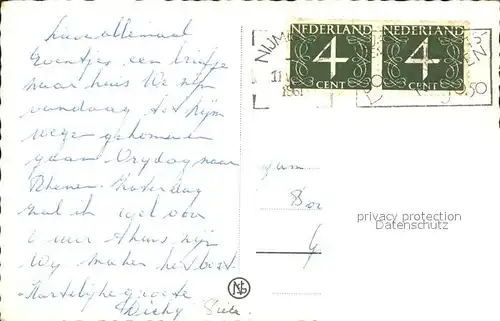 Lieve allemaal
Eventjes een briefje
naar huis We zijn
vandaag tot Nijm
wegen gekomen en
gaan Vrijdag naar
Rhenen. Zaterdag
zal ik wel voor
6 uur thuis zijn
Wij maken het best
Hartelijke groete
Dicky
NEDERLAND NEDERLAND
4 4
CENT CENT
NIJM
11
196
50
Fam
privacy protection
Datenschutz